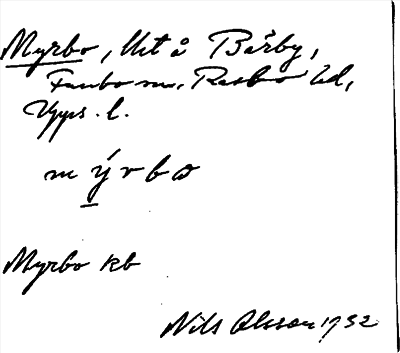 Myrbo, Ut å Bärby,
Funbo sn, Rasbo hd,
Upps. l.
mýrbo
Myrbo kb
Nils Olsson 1932